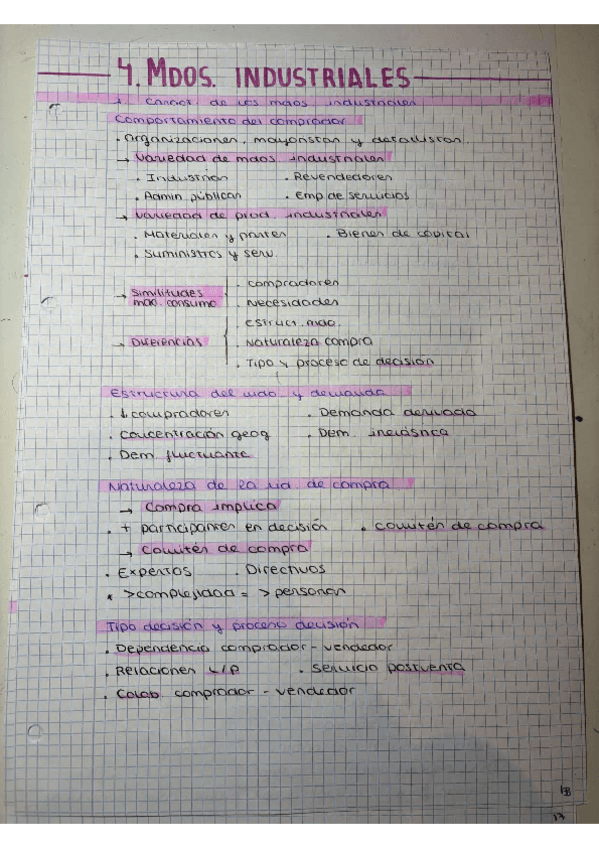 4. MDOS. INDUSTRIALES
1. Caract. de los mdos. industriales
Comportamiento del comprador
· Organizaciones, mayoristas y detallistas.
→ Variedad de mdos. industriales
· Industrias · Revendedores
· Admin públicas · Emp de servicios
→ Variedad de prod. industriales
· Materiales y partes · Bienes de capital
· Suministros y serv
→ Similitudes mdo. consumo
· compradores
· Necesidades
→ Diferencias
· estruct. mdo.
· Naturaleza compra
· Tipo y proceso de decisión
Estructura del mdo y demanda
· ↓ compradores · Demanda derivada
· Concentración geog · Dem. inelástica
· Dem fluctuante
Naturaleza de la ud. de compra
→ Compra implica
· + participantes en decisión · comités de compra
→ Comités de compra
· Expertos · Directivos
* > complejidad = > personas
Tipo decisión y proceso decisión
· Dependencia comprador - vendedor
· Relaciones L/P · Servicio postventa
· Colab. comprador - vendedor
13
13